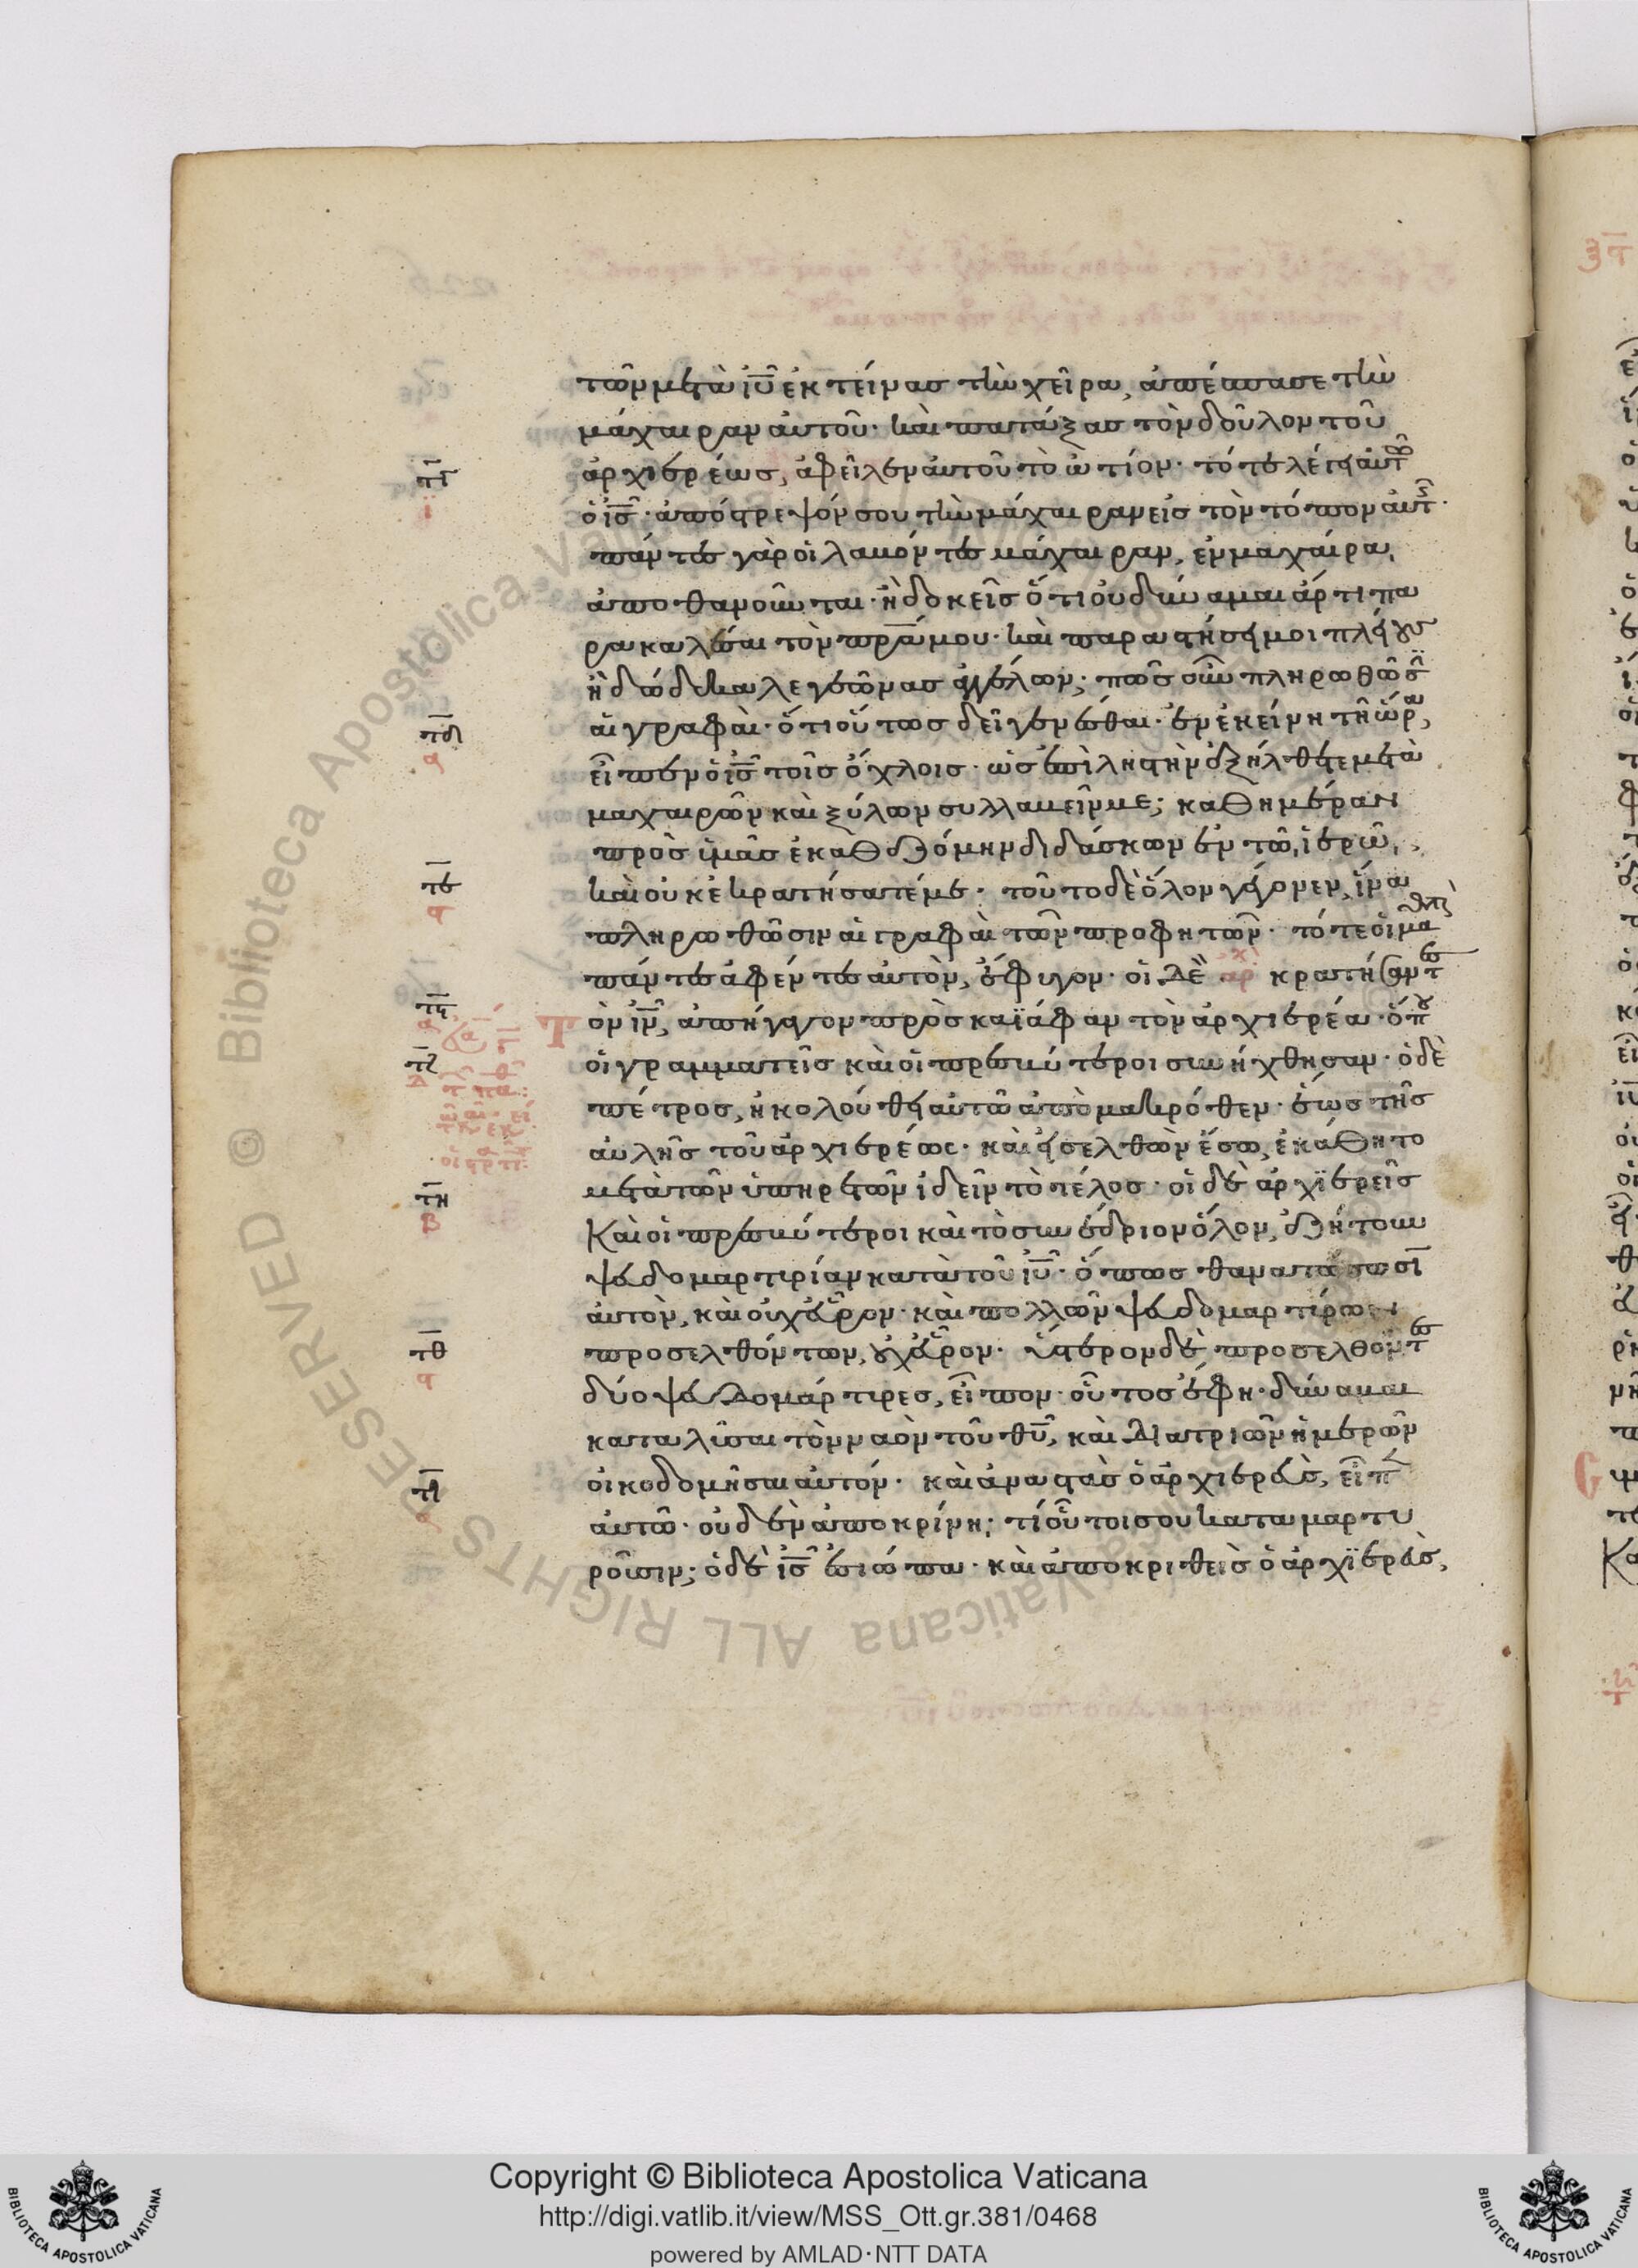 τῶν μετὰ ἰῦ ἐκτείνας τὴν χεῖρα, ἀπέσπασε τὴν
μάχαιραν αὐτοῦ· καὶ πατάξας τὸν δοῦλον τοῦ
ἀρχιερέως, ἀφεῖλεν αὐτοῦ τὸ ὠτίον· τότε λέγει αὐτῶ
ὁ ἰς· ἀπόστρεψόν σου τὴν μάχαιραν εἰς τὸν τόπον αὐτῆς·
πάντες γὰρ οἱ λαβόντες μάχαιραν, ἐν μαχαίρα,
ἀποθανοῦνται· ἢ δοκεῖς ὅτι οὐ δύναμαι ἄρτι πα
ρακαλέσαι τὸν πρα μου· καὶ παραστήσει μοι πλείους
ἢ δώδεκα λεγεῶνας ἀγγέλων; πῶς οὖν πληρωθῶσιν
αἱ γραφαὶ· ὅτι οὕτως δεῖ γενέσθαι· ἐν ἐκείνη τῆ ὥρα,
εἶπεν ὁ ἰς τοῖς ὄχλοις· ὡς ἐπὶ ληστὴν ἐξήλθετε μετὰ
μαχαιρῶν καὶ ξύλων συλλαβεῖν με; καθημέραν
πρὸς ὑμᾶς ἐκαθεζόμην διδάσκων ἐν τῶ ἱερῶ,
καὶ οὐκ ἐκρατήσατέ με· τοῦτο δὲ ὅλον γέγονεν, ἵνα
πληρωθῶσιν αἱ γραφαὶ τῶν προφητῶν· τότε οἱ μαθηταὶ
πάντες ἀφέντες αὐτὸν, ἔφυγον· οἱ δὲ ἀρχ κρατήσαντες
Τὸν ἰν, ἀπήγαγον πρὸς καϊάφαν τὸν ἀρχιερέα· ὅπου
οἱ γραμματεῖς καὶ οἱ πρεσβύτεροι συνήχθησαν· ὁ δὲ
πέτρος, ἠκολούθει αὐτῶ ἀπὸ μακρόθεν· ἕως τῆς
αὐλῆς τοῦ ἀρχιερέως· καὶ εἰσελθὼν ἔσω, ἐκάθητο
μετὰ τῶν ὑπηρετῶν ἰδεῖν τὸ τέλος· οἱ δὲ ἀρχϊερεῖς
Καὶ οἱ πρεσβύτεροι καὶ τὸ συνέδριον ὅλον, ἐζήτουν
ψευδομαρτυρίαν κατὰ τοῦ ἰῦ· ὅπως θανατώσωσι
αὐτὸν, καὶ οὐχ εὗρον· καὶ πολλῶν ψευδομαρτύρων
προσελθόντων, οὐχ εὗρον· ὕστερον δὲ προσελθόντες
δύο ψευδομάρτυρες, εἶπον· οὗτος ἔφη· δύναμαι
καταλῦσαι τὸν ναὸν τοῦ θῦ, καὶ διατριῶν ἡμερῶν
οἰκοδομῆσαι αὐτόν· καὶ ἀναστὰς ὁ ἀρχιερεὺς, εἶπεν
αὐτῶ· οὐδὲν ἀποκρίνη; τί οὗτοι σου καταμαρτυ
ροῦσιν; ὁ δὲ ἰς ἐσιώπα· καὶ ἀποκριθεὶς ὁ ἀρχϊερεὺς,
Copyright © Biblioteca Apostolica Vaticana
http://digi.vatlib.it/view/MSS_Ott.gr.381/0468
powered by AMLAD·NTT DATA